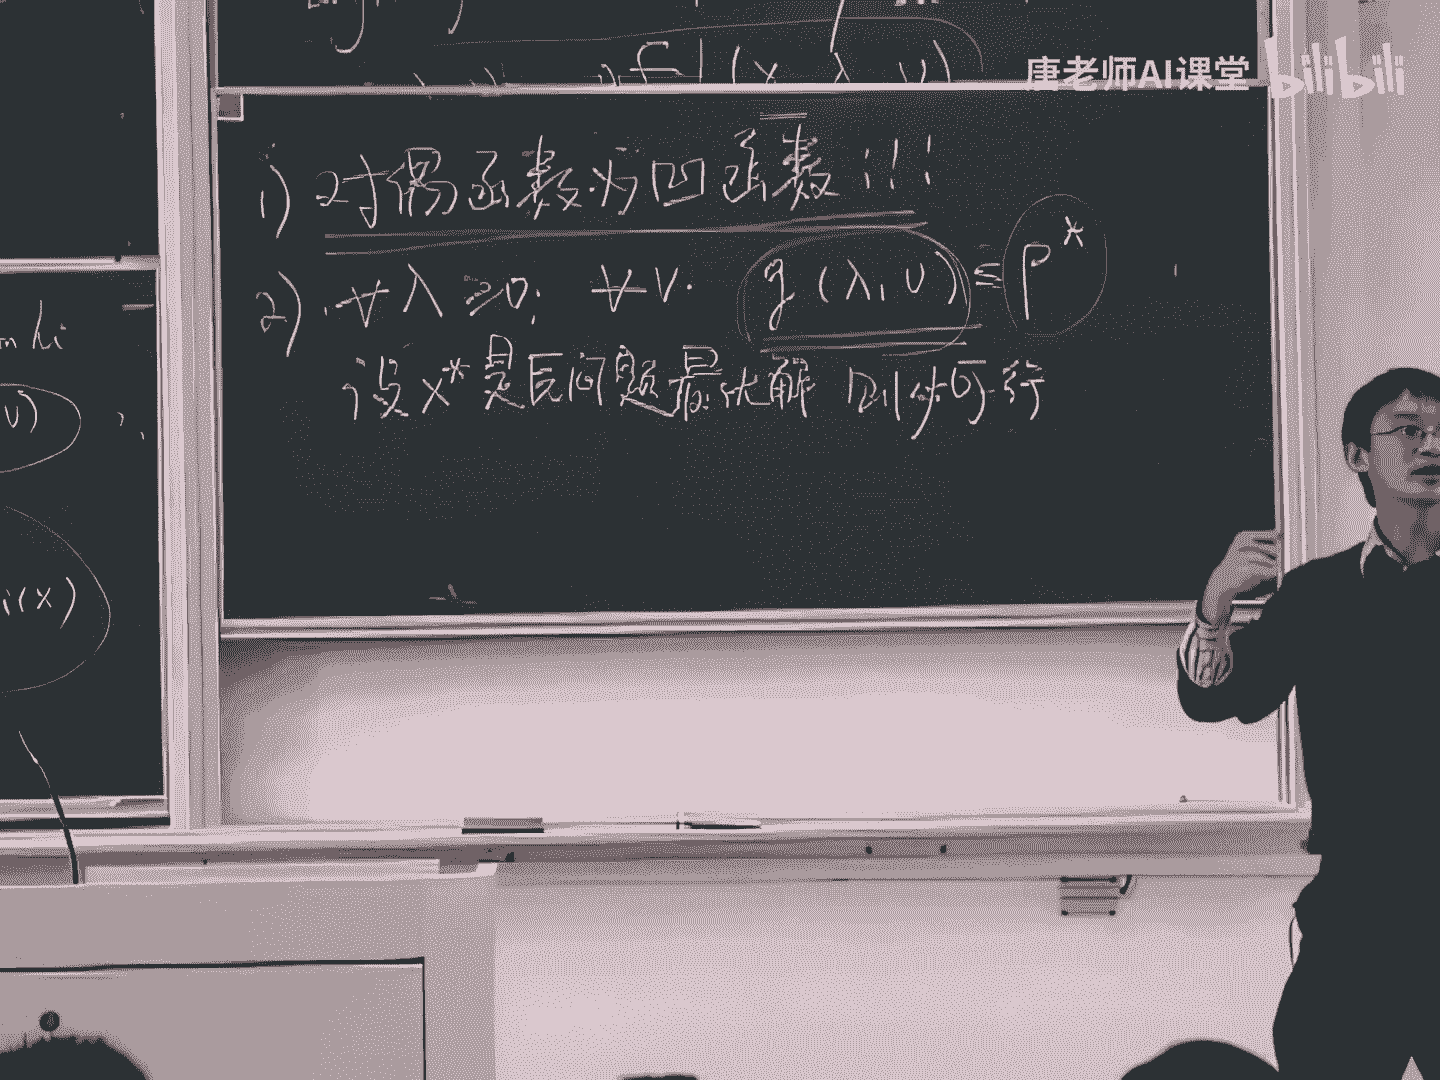 (x λ υ)
唐老师AI课堂 bilibili
1) 对偶函数必凹函数!!!
2) ∀λ≥0; ∀υ. g(λ,υ) ≤ P*
设x*是原问题最优解 则必可行
m hi
υ)
i(x)